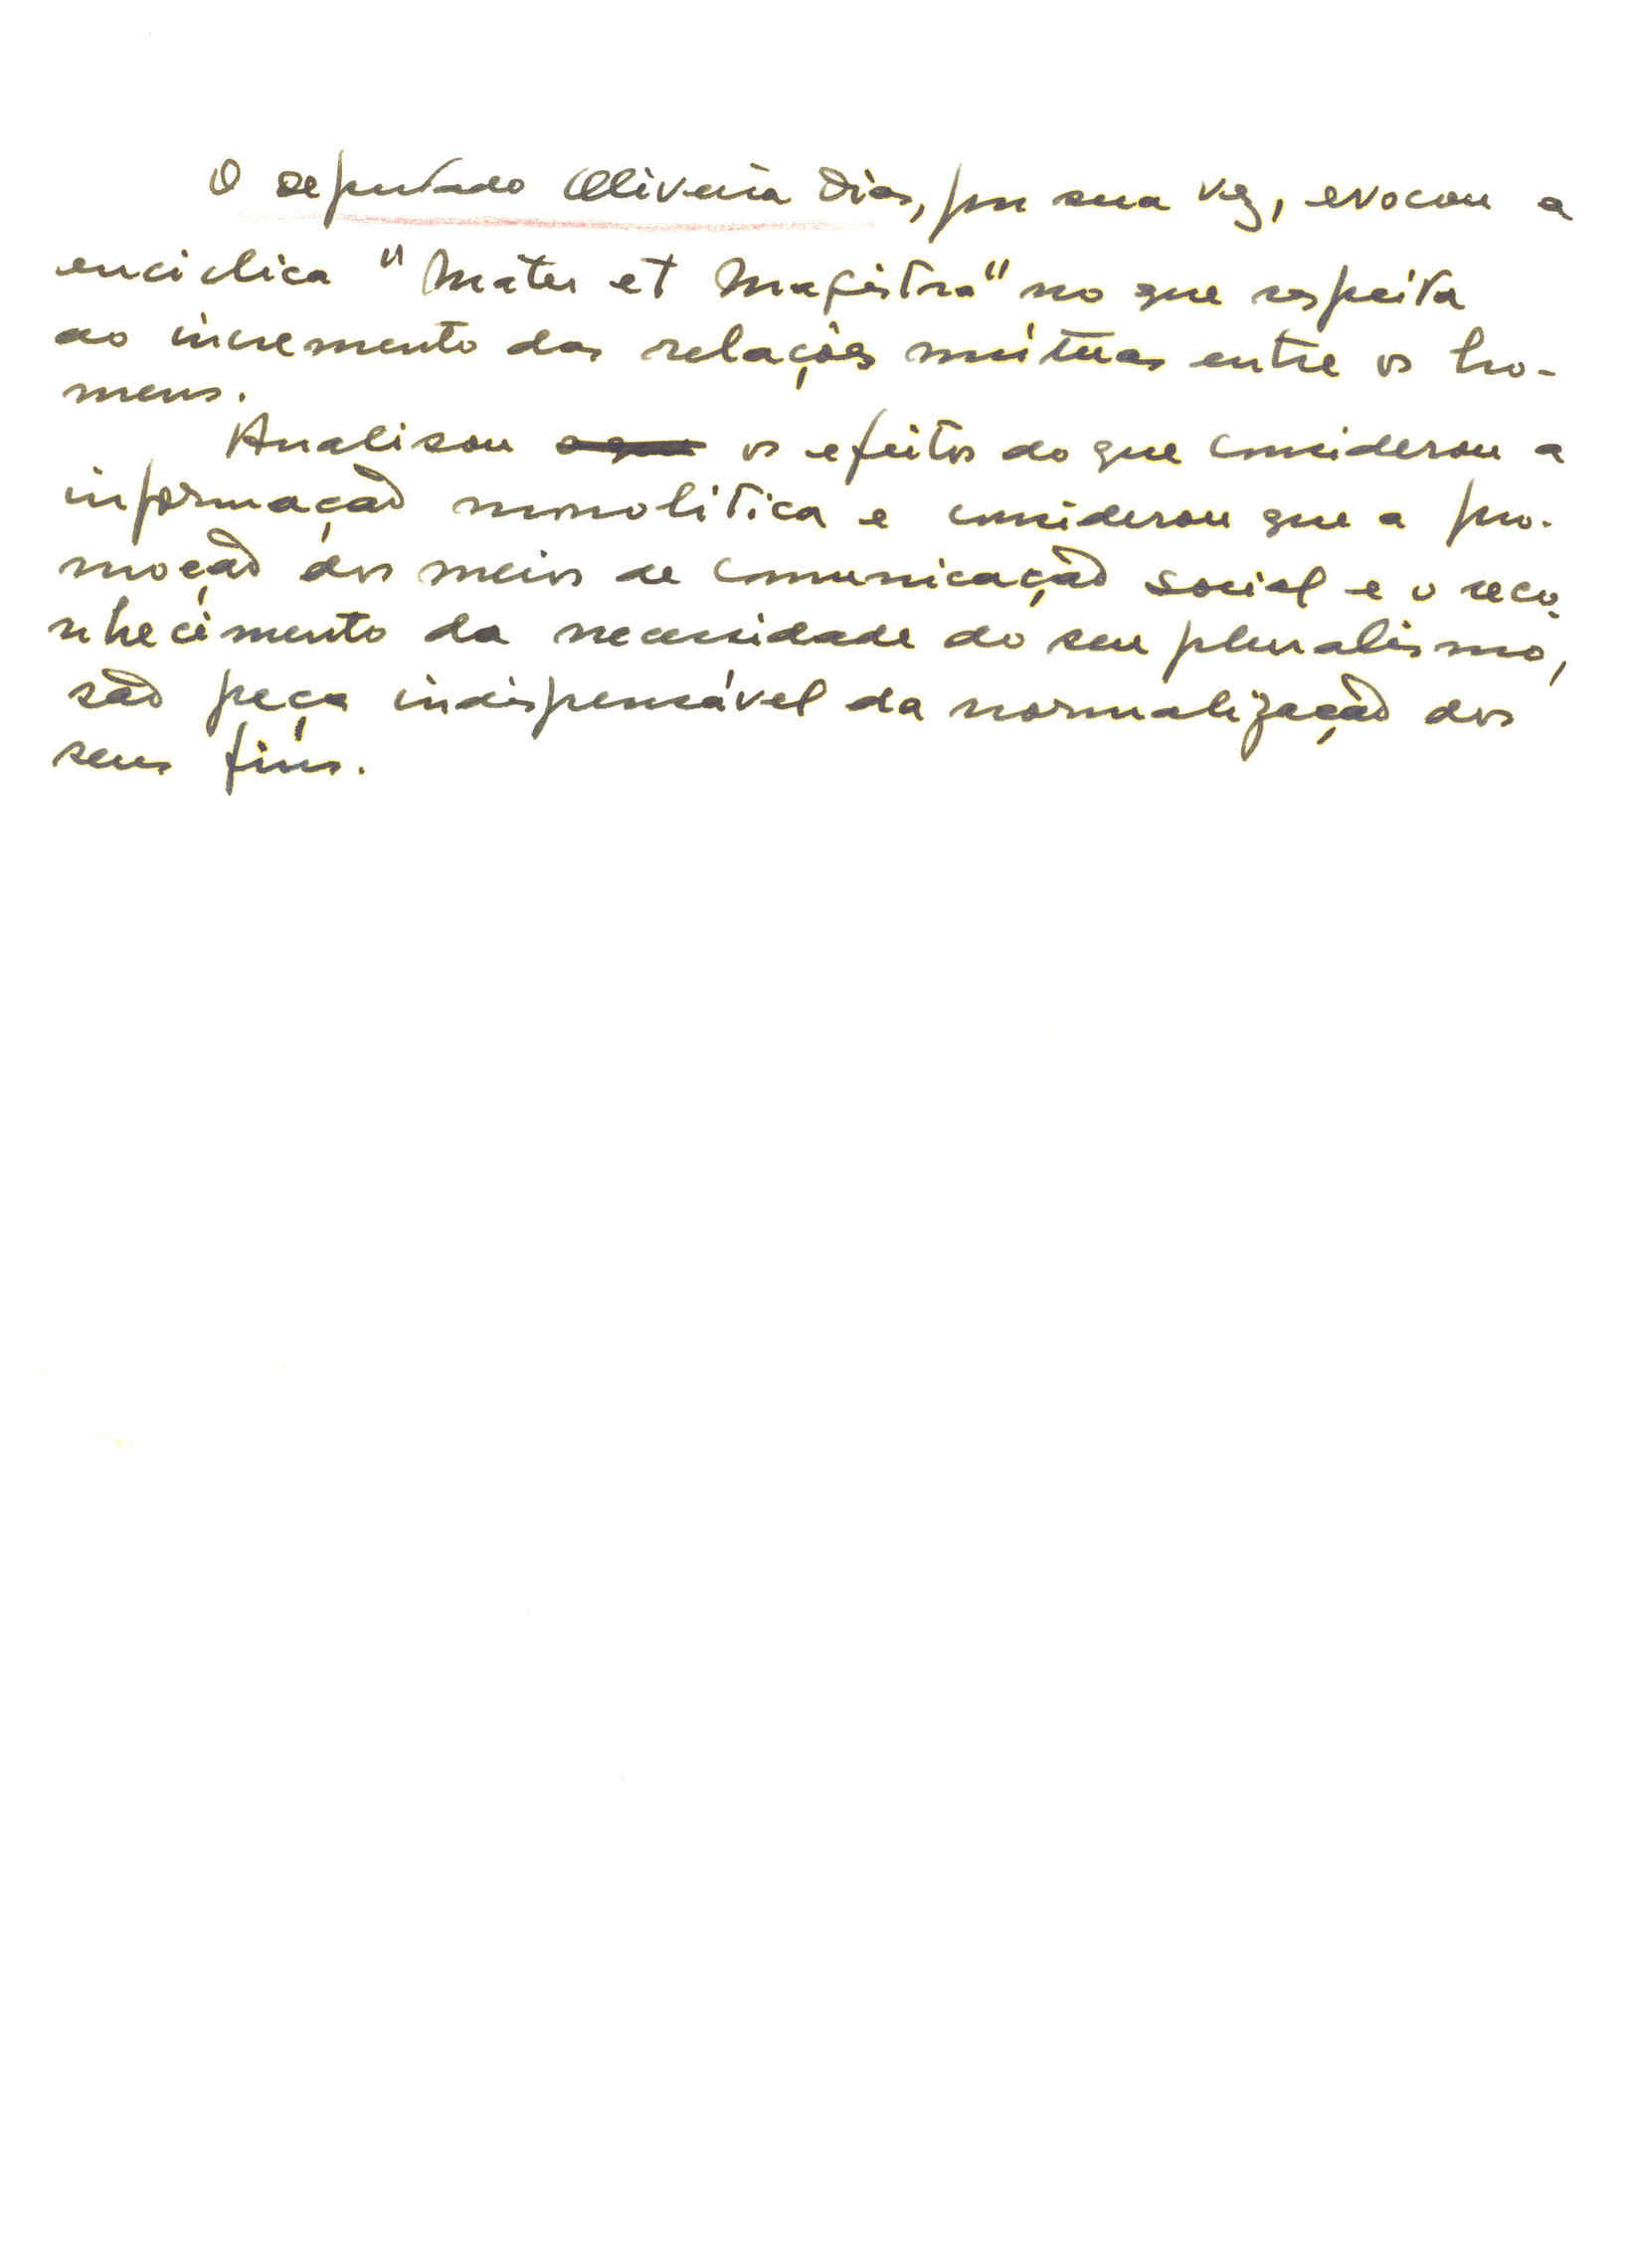 O deputado Oliveira Dias, por sua vez, evocou a
enciclica "Mater et Magistra" no que respeita
ao incremento das relações mútuas entre os ho-
mens.
Analisou os efeitos do que considerou a
informação monolitica e considerou que a pro-
moção dos meios de comunicação social e o reco-
nhecimento da necessidade do seu pluralismo,
são peça indispensável da normalização dos
seus fins.